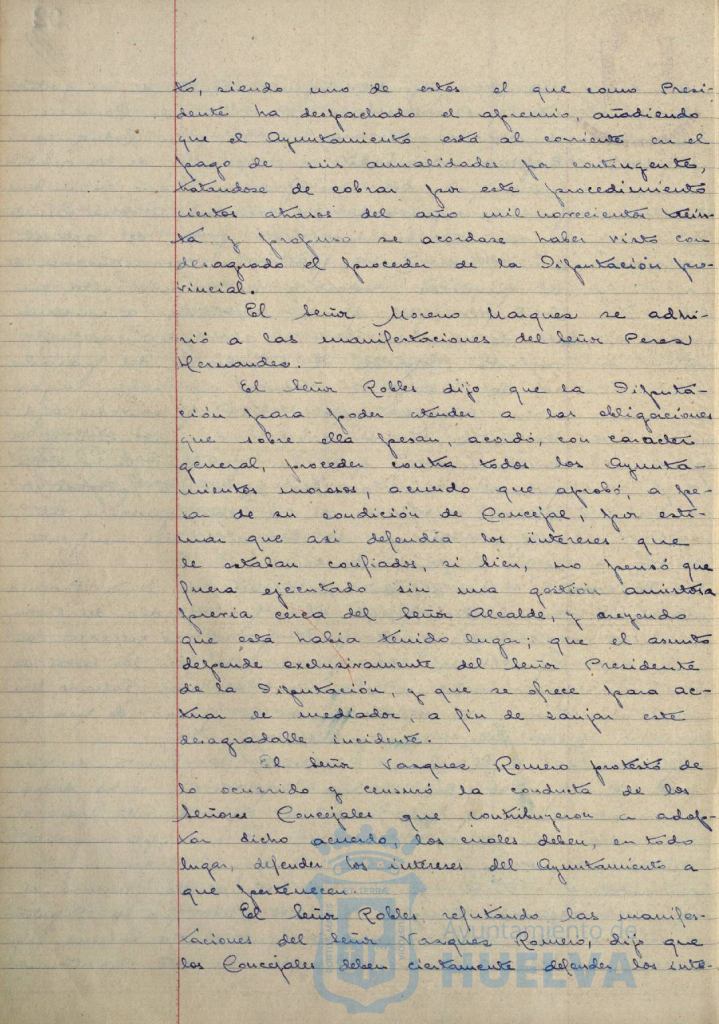 to, siendo uno de estos el que como Presi-
dente ha despachado el apremio, añadiendo
que el Ayuntamiento está al corriente en el
pago de sus anualidades por contingente,
tratandose de cobrar por este procedimiento
ciertos atrasos del año mil novecientos trein-
ta, y propuso se acordase haber visto con
desagrado el proceder de la Diputación pro-
vincial.
El Señor Moreno Marquez se adhi-
rió a las manifestaciones del Señor Perez
Hernandez.
El Señor Robles dijo que la Diputa-
ción para poder atender a las obligaciones
que sobre ella pesan, acordó, con caracter
general, proceder contra todos los Ayunta-
mientos morosos, acuerdo que aprobó, a pe-
sar de su condición de Concejal, por esti-
mar que asi defendia los intereses que
le estaban confiados, si bien, no pensó que
fuera ejecutado sin una gestión amistosa
previa cerca del Señor Alcalde, y creyendo
que esta habia tenido lugar; que el asunto
depende exclusivamente del Señor Presidente
de la Diputación, y que se ofrece para ac-
tuar de mediador, a fin de zanjar este
desagradable incidente.
El Señor Vazquez Romero protestó de
lo ocurrido y censuró la conducta de los
Señores Concejales que contribuyeron a adop-
tar dicho acuerdo, los cuales deben, en todo
lugar, defender los intereses del Ayuntamiento a
que pertenecen.
El Señor Robles, refutando las manifes-
taciones del Señor Vazquez Romero, dijo que
los Concejales deben ciertamente defender los inte-
Ayuntamiento de
HUELVA